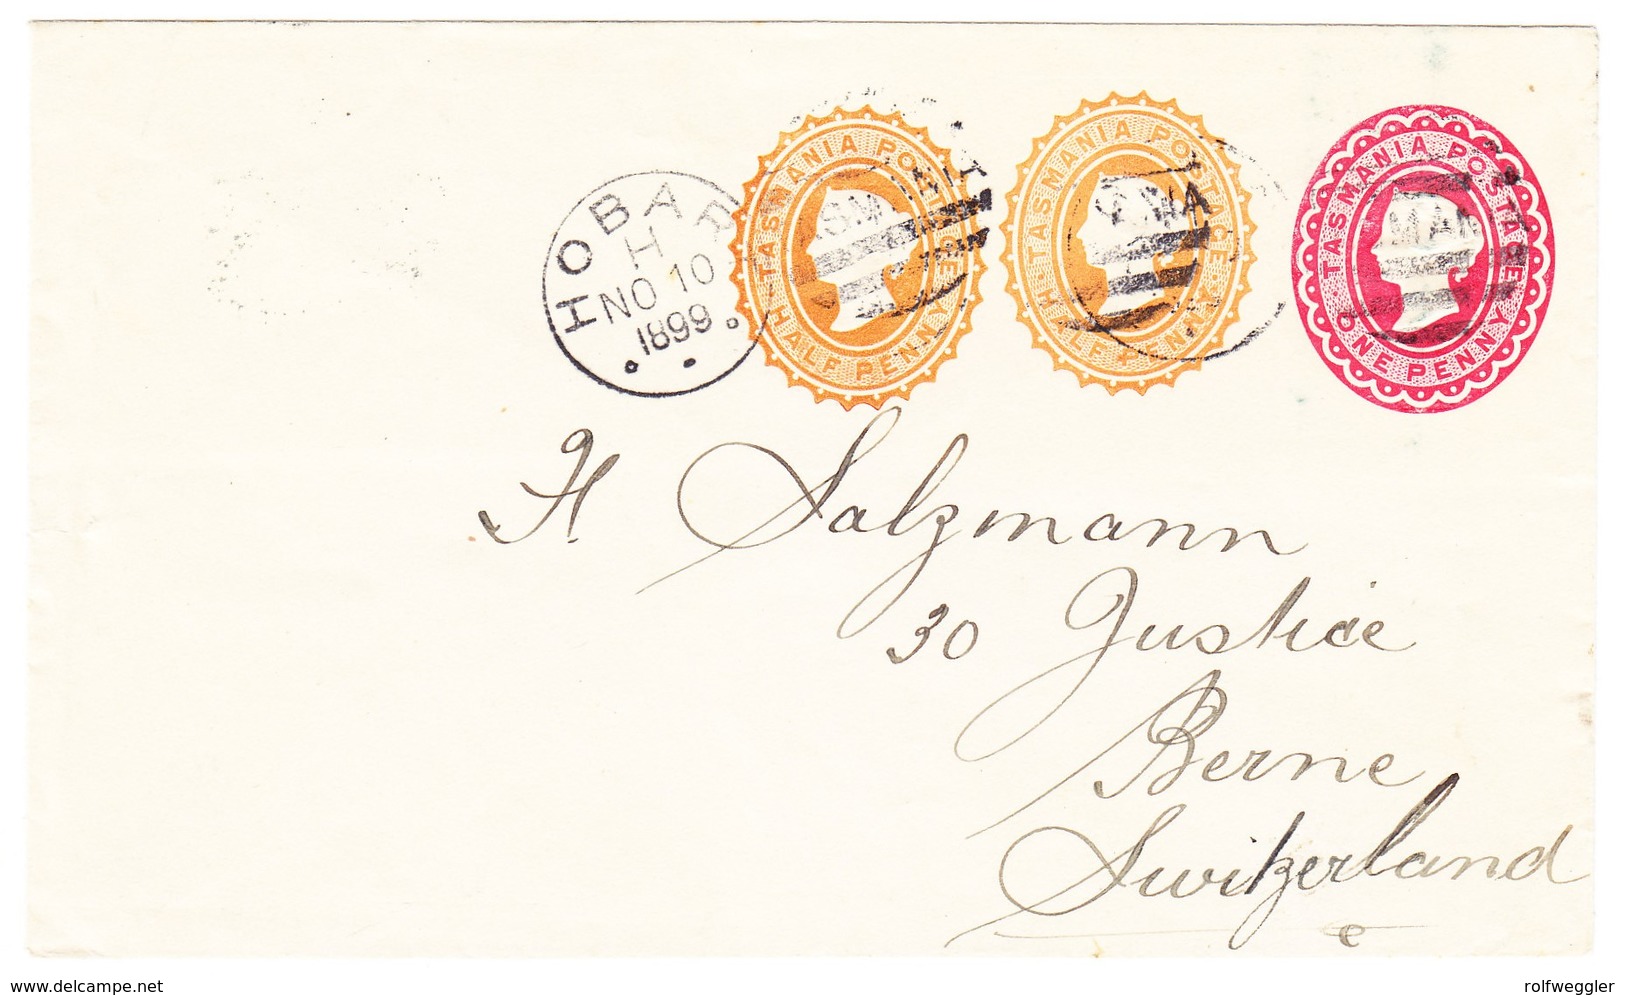 HOBAR
H
NO 10
1899
TASMANIA POSTAGE
HALF PENNY
TASMANIA POSTAGE
HALF PENNY
TASMANIA POSTAGE
ONE PENNY
H Salzmann
30 Justice
Berne
Switzerland
www.delcampe.net
rolfweggler